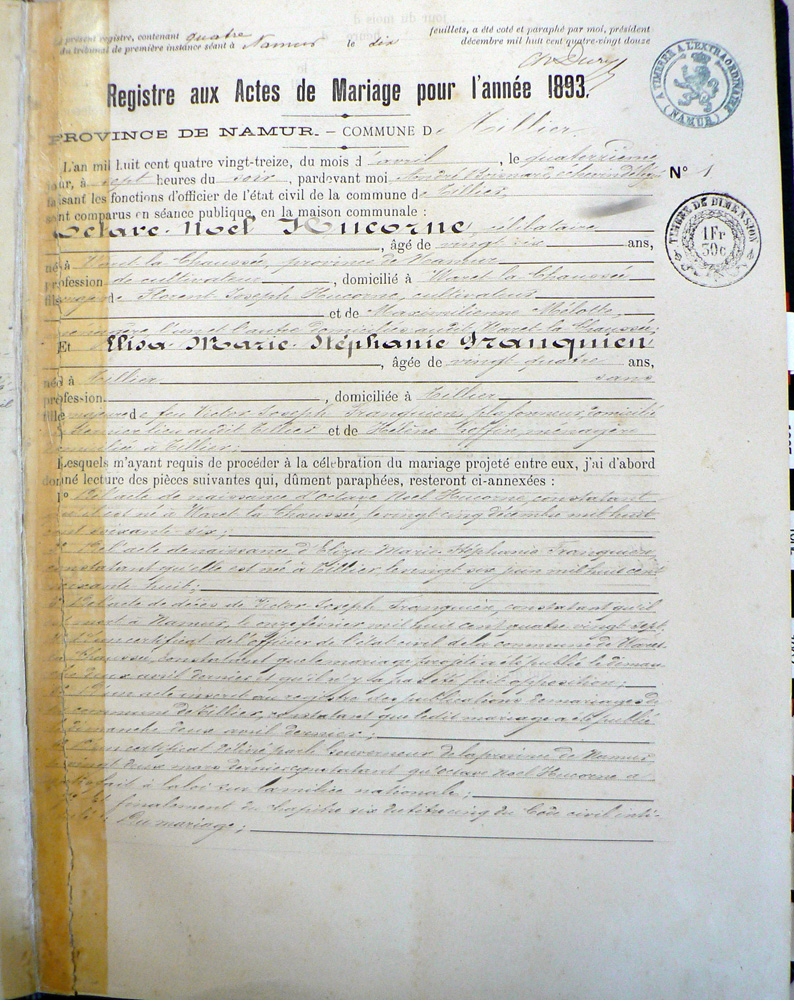 Le présent registre, contenant quatre feuillets, a été coté et paraphé par moi, président
du tribunal de première instance séant à Namur le dix décembre mil huit cent quatre-vingt douze
Registre aux Actes de Mariage pour l'année 1893.
A TIMBRER A L'EXTRAORDINAIRE (NAMUR)
PROVINCE DE NAMUR. — COMMUNE De Tillier.
L'an mil huit cent quatre vingt-treize, du mois d'avril, le quatorzième
jour, à sept heures du soir, pardevant moi André échevin
N° 1
faisant les fonctions d'officier de l'état civil de la commune de Tillier,
sont comparus en séance publique, en la maison communale :
TIMBRE DE DIMENSION 1Fr 30c
Octave Noël Hucorne, célibataire
, âgé de vingt six ans,
né à Waret la Chaussée, province de Namur
profession de cultivateur, domicilié à Waret la Chaussée
fils majeur de Florent Joseph Hucorne, cultivateur
et de Maximilienne Mélotte,
ménagère, l'un et l'autre domiciliés audit Waret la Chaussée;
Et Elisa Marie Stéphanie Franquien
, âgée de vingt quatre ans,
née à Tillier sans
profession, domiciliée à Tillier
fille majeure de feu Victor Joseph Franquien, plafonneur, domicilié
en dernier lieu audit Tillier et de Hélène ménagère
domiciliée à Tillier;
Lesquels m'ayant requis de procéder à la célébration du mariage projeté entre eux, j'ai d'abord
donné lecture des pièces suivantes qui, dûment paraphées, resteront ci-annexées :
1° De l'acte de naissance d'Octave Noël Hucorne, constatant
qu'il est né à Waret la Chaussée, le vingt cinq décembre mil huit
cent soixante-six;
2° De l'acte de naissance d'Eliza Marie Stéphanie Franquien
constatant qu'elle est née à Tillier, le vingt six juin mil huit cent
soixante huit;
3° De l'acte de décès de Victor Joseph Franquien, constatant qu'il
est mort à Namur, le onze février mil huit cent quatre vingt sept;
4° D'un certificat de l'officier de l'état civil de la commune de Waret
la Chaussée, constatant que le mariage projeté a été publié le diman-
che deux avril dernier et qu'il n'y a pas été fait opposition;
5° D'un acte inscrit au registre des publications de mariages de
la commune de Tillier, constatant que ledit mariage a été publié
le dimanche deux avril dernier;
6° D'un certificat délivré par le Gouverneur de la province de Namur
le vingt deux mars dernier constatant qu'Octave Noël Hucorne a
satisfait à la loi sur la milice nationale;
7° Et finalement du chapitre six du titre cinq du Code civil inti-
tulé: Du mariage;